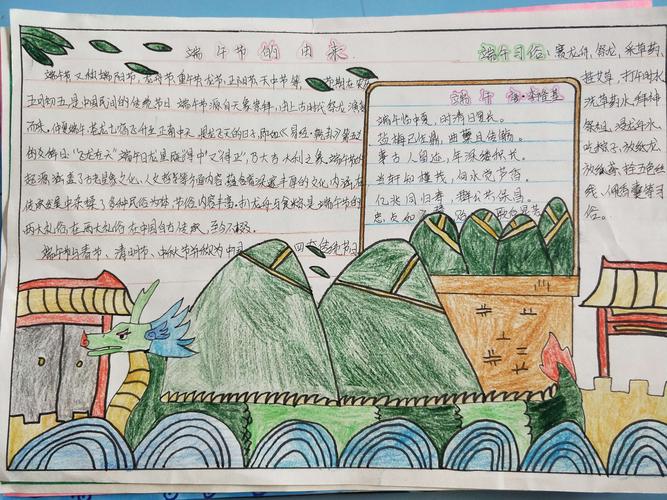 端午节的由来
端午节又称端阳节、龙舟节、重午节、龙节、正阳节、天中节等，日期在农历
五月初五是中国民间的传统节日。端午节源自天象崇拜,由上古时代祭龙演变
而来。仲夏端午,苍龙七宿飞升至正南中天,是龙飞天的日子,即如《易经·乾卦》第五爻
的爻辞曰:"飞龙在天"端午日龙星既"得中"又"得正",乃大吉大利之象。端午节的
起源涵盖了古老星象文化、人文哲学等方面内容,蕴含着深邃丰厚的文化内涵,在
传承发展中杂糅了多种民俗为一体,节俗内容丰富,扒龙舟与食粽是端午节的
两大礼俗,这两大礼俗在中国自古传承,至今不辍。
端午节与春节、清明节、中秋节并称为中国 四大传统节日
端午 唐·李隆基
端午临中夏，时清日复长。
盐梅已佐鼎，曲糵且传觞。
事古人留迹，年深缕积长。
当轩知槿茂，向水觉芦香。
亿兆同归寿，群公共保昌。
忠贞如不替，贻
端午习俗：赛龙舟、祭龙、采草药、
挂艾草、打午时水、
洗草药水、拜神
祭祖、浸龙舟水、
吃粽子、放纸龙、
放纸鸢、拴五色丝
线、佩香囊等习
俗。